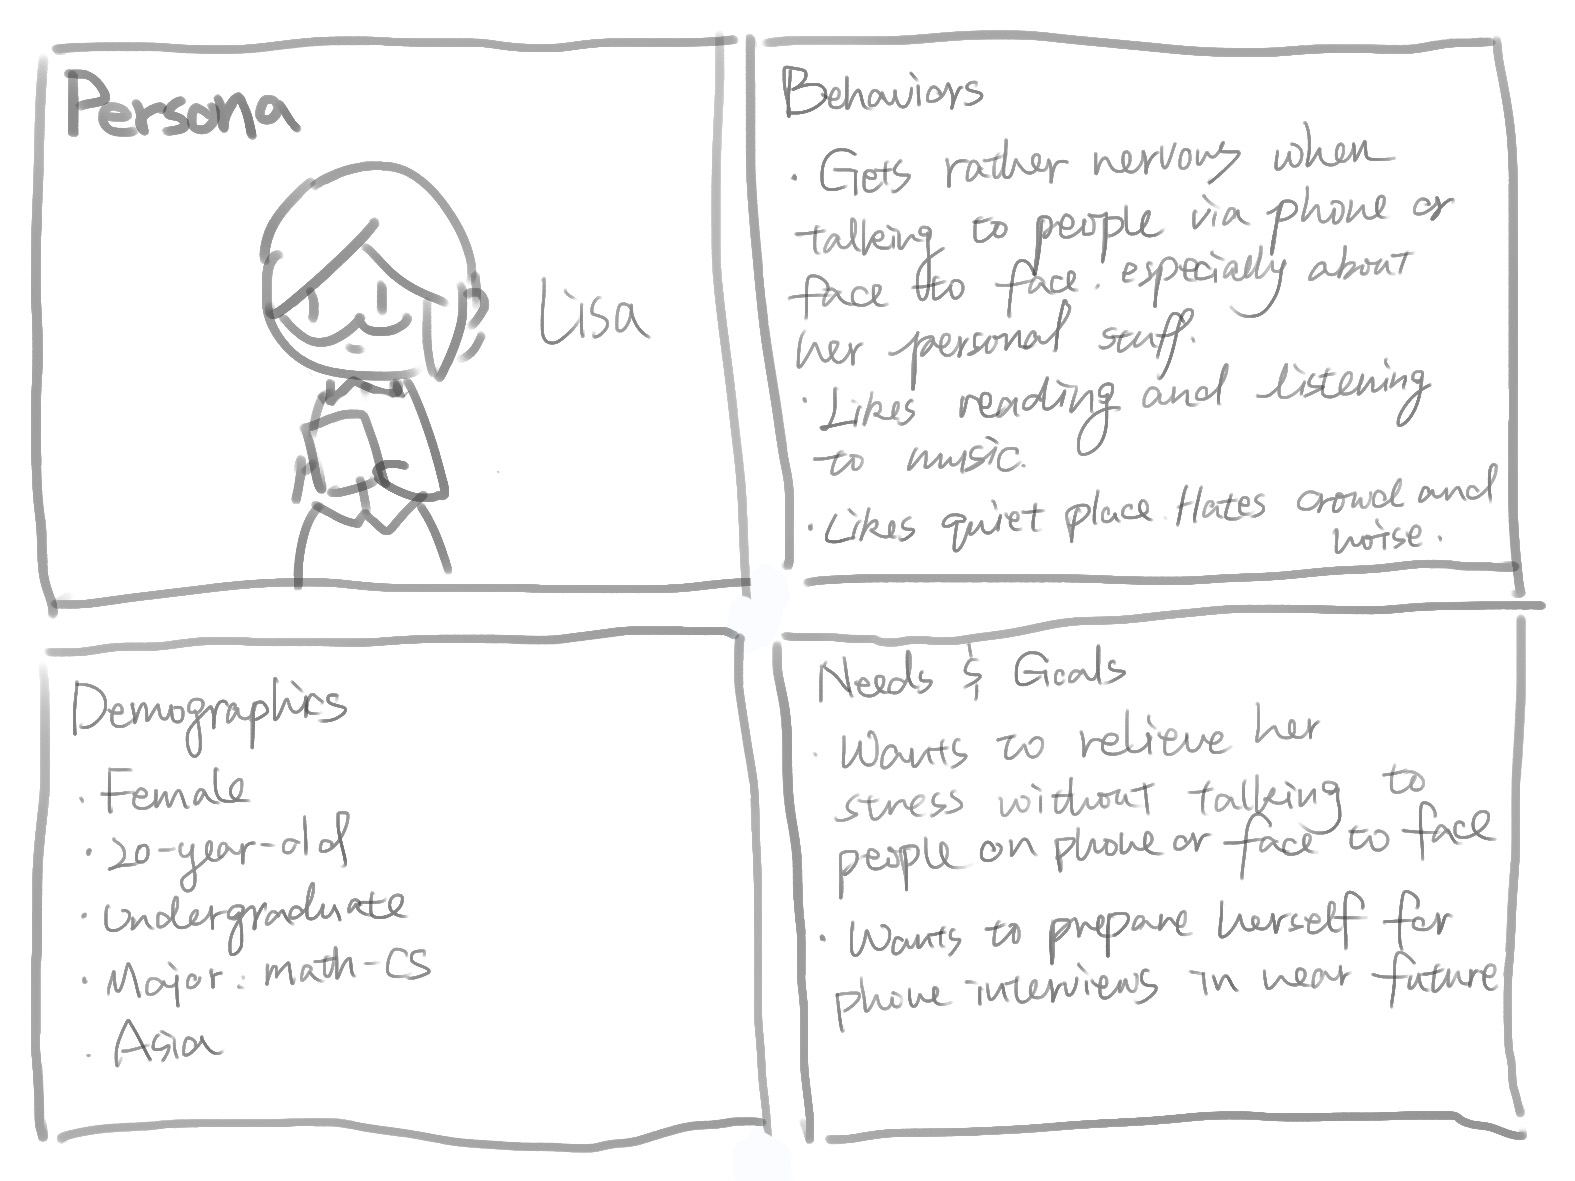 Persona
Lisa
Behaviors
· Gets rather nervous when
talking to people via phone or
face to face. especially about
her personal stuff.
· Likes reading and listening
to music.
· Likes quiet place. Hates crowd and
noise.
Demographics
· Female
· 20-year-old
· Undergraduate
· Major: math-CS
· Asian
Needs & Goals
· Wants to relieve her
stress without talking to
people on phone or face to face
· Wants to prepare herself for
phone interviews in near future